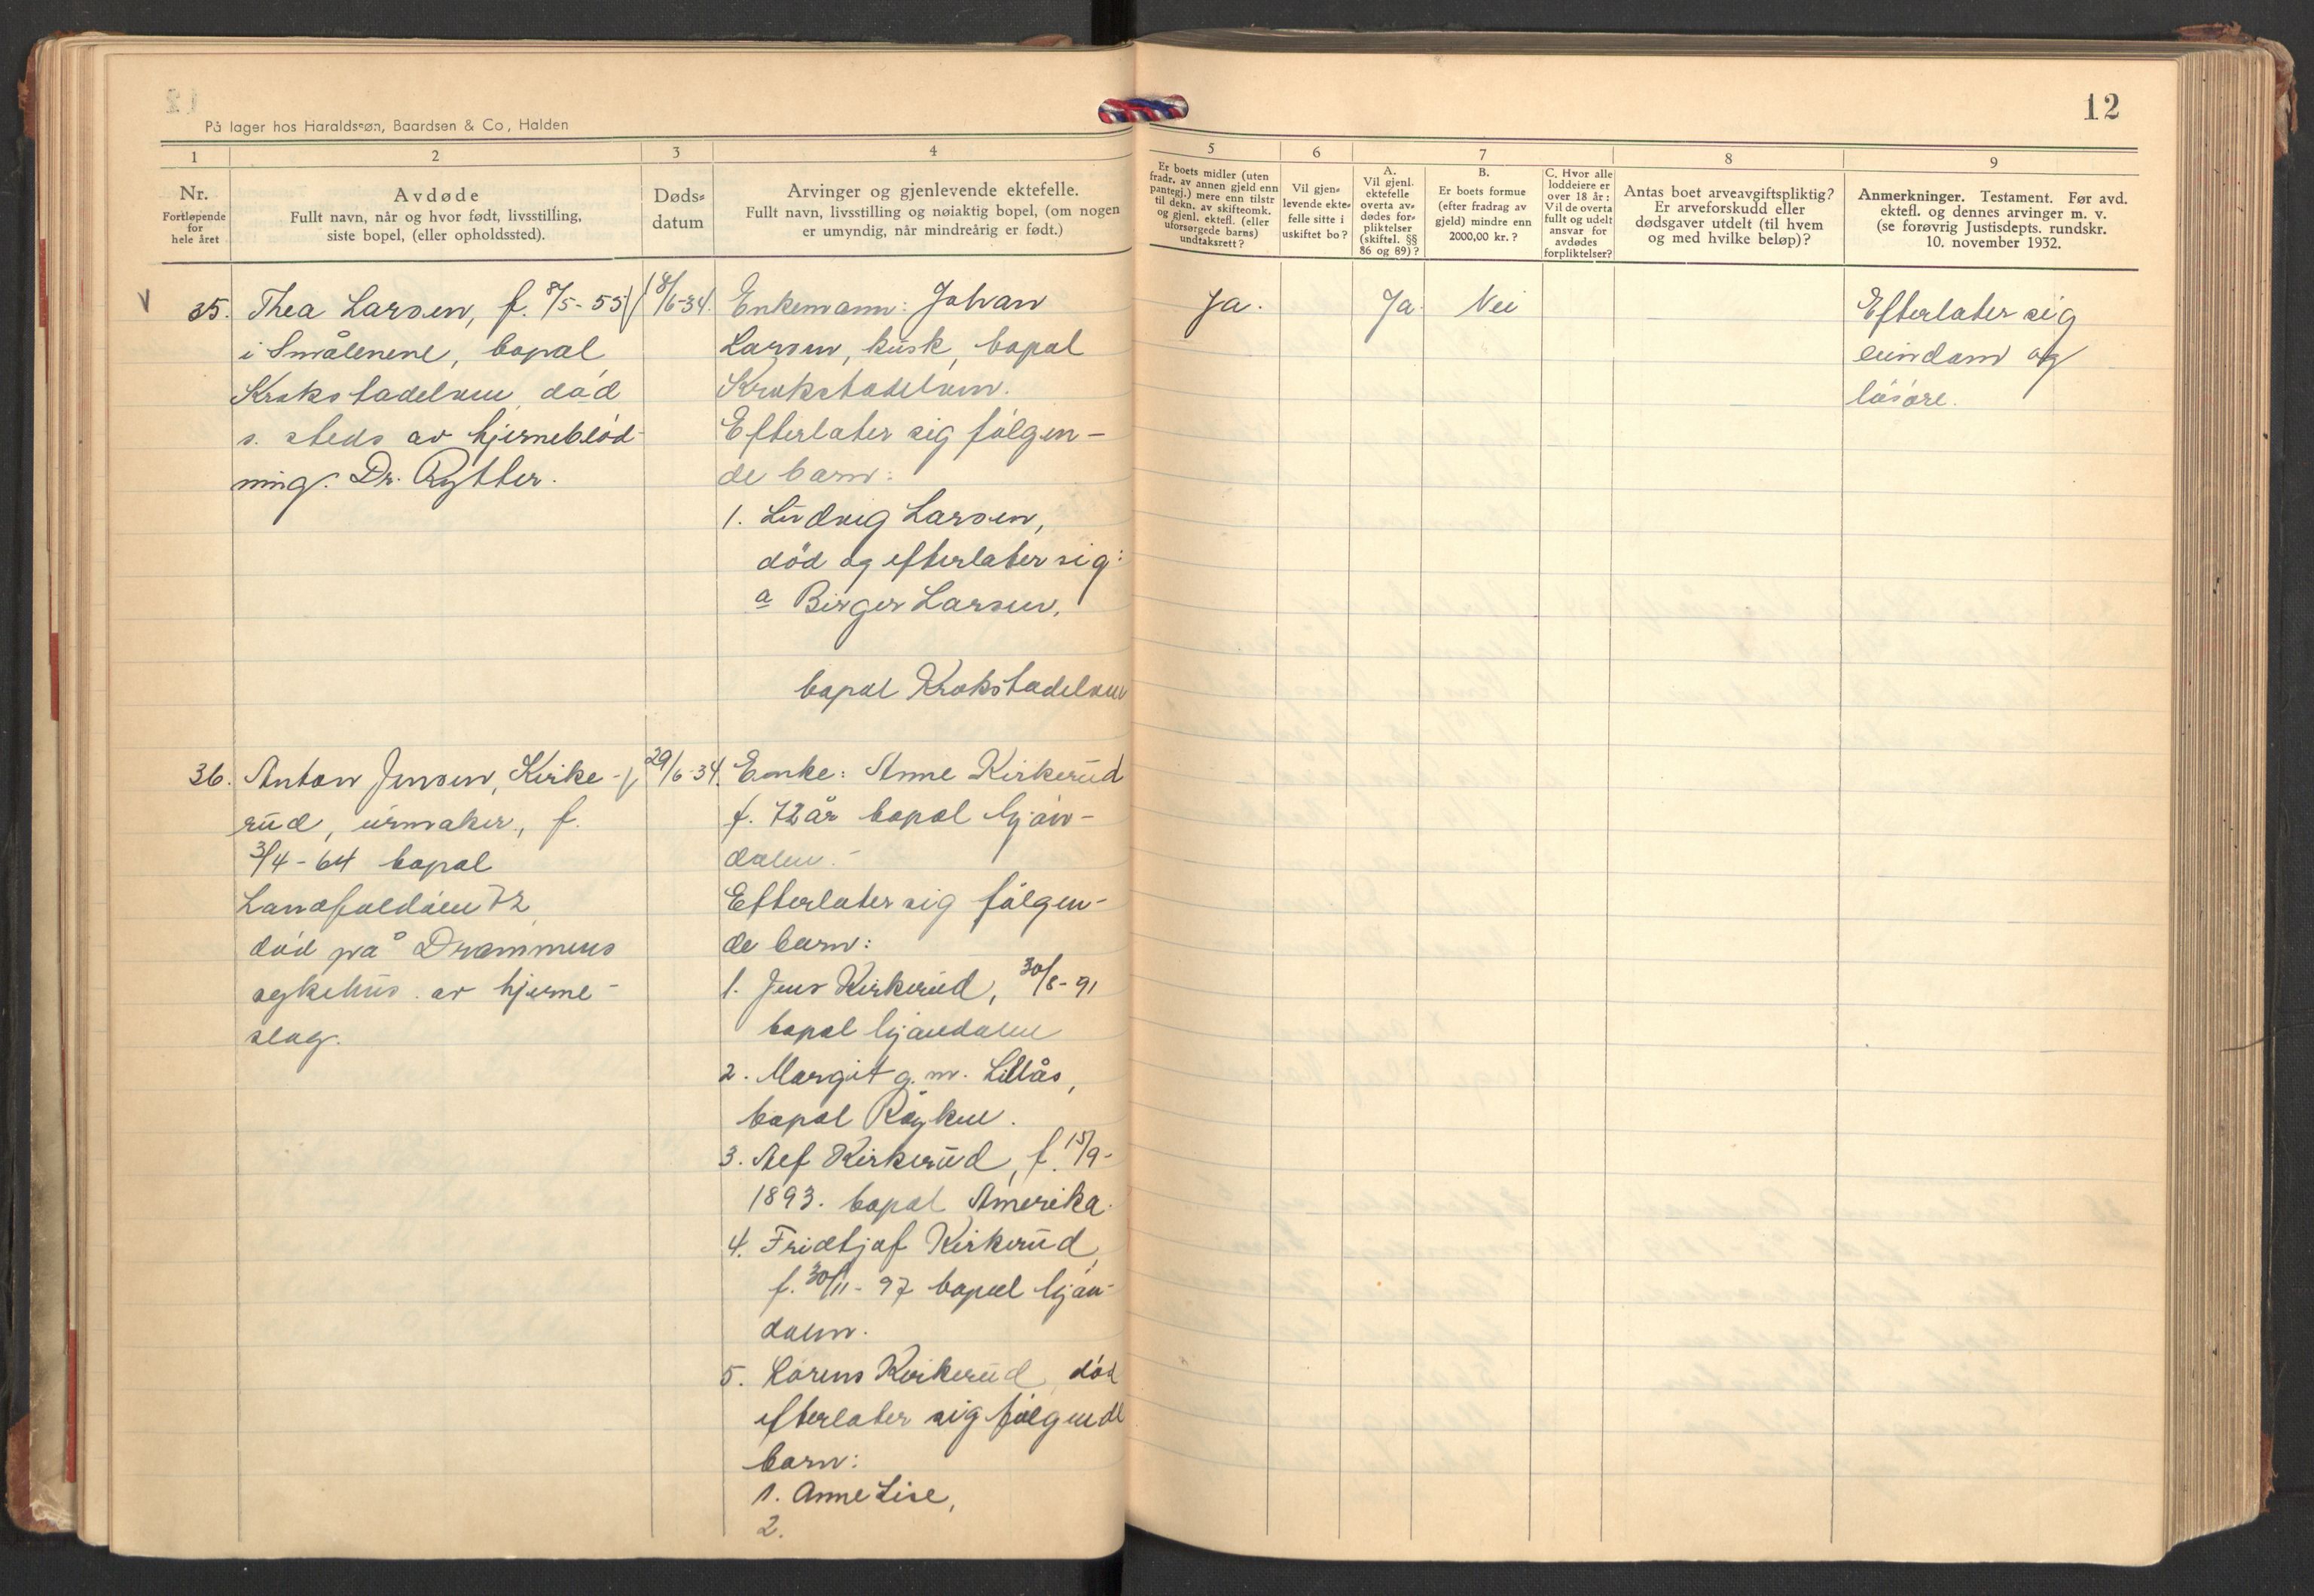 12
På lager hos Haraldssøn, Baardsen & Co, Halden
1
2
3
4
Nr.
Fortløpende
for
hele året
Avdøde
Fullt navn, når og hvor født, livsstilling,
siste bopel, (eller opholdssted).
Døds-
datum
Arvinger og gjenlevende ektefelle.
Fullt navn, livsstilling og nøiaktig bopel, (om nogen
er umyndig, når mindreårig er født.)
35.
Thea Larsen, f. 8/5-55
i Smålenene, bopæl
Krokstadelven død
s. steds av hjerneblöd-
ning. Dr. Rytter.
8/6-34.
Enkemann: Johan
Larsen, kusk, bopæl
Krokstadelven.
Efterlater sig følgen-
de barn:
1. Ludvig Larsen,
död og efterlater sig:
a Birger Larsen,
bopæl Krokstadelven
36.
Anton Jensen, Kirke-
rud, urmaker, f.
3/4-64 bopæl
Landfaldöen 72
död på Drammens
sykehus av hjerne-
slag.
29/6-34.
Enke: Anne Kirkerud
f. 72 år bopæl Mjön-
dalen.-
Efterlater sig følgen-
de barn:
1. Jens Kirkerud, 30/8-91
bopæl Mjöndalen
2. Margit g. m. Lillås,
bopæl Röyken.
3. Alf Kirkerud, f. 15/9-
1893. bopæl Amerika.
4. Fridtjof Kirkerud,
f. 30/11-97 bopæl Mjön-
dalen.
5. Lorens Kirkerud död
efterlater sig følgende
barn:
1. Anne Lise,
2.
12
5
6
7
8
9
Er boets midler (uten
fradr. av annen gjeld enn
pantegj.) mere enn tilstr
til dekn. av skifteomk.
og gjenl. ektefl. (eller
uforsørgede barns)
undtaksrett?
Vil gjen-
levende ekte-
felle sitte i
uskiftet bo?
A.
Vil gjenl.
ektefelle
overta av-
dødes for-
pliktelser
(skiftel. §§
86 og 89)?
B.
Er boets formue
(efter fradrag av
gjeld) mindre enn
2000,00 kr.?
C. Hvor alle
loddeiere er
over 18 år:
Vil de overta
fullt og udelt
ansvar for
avdødes
forpliktelser?
Antas boet arveavgiftspliktig?
Er arveforskudd eller
dødsgaver utdelt (til hvem
og med hvilke beløp)?
Anmerkninger. Testament. Før avd.
ektefl. og dennes arvinger m. v.
(se forøvrig Justisdepts. rundskr.
10. november 1932.
Ja.
Ja.
Nei
Efterlater sig
eiendom og
lösöre.